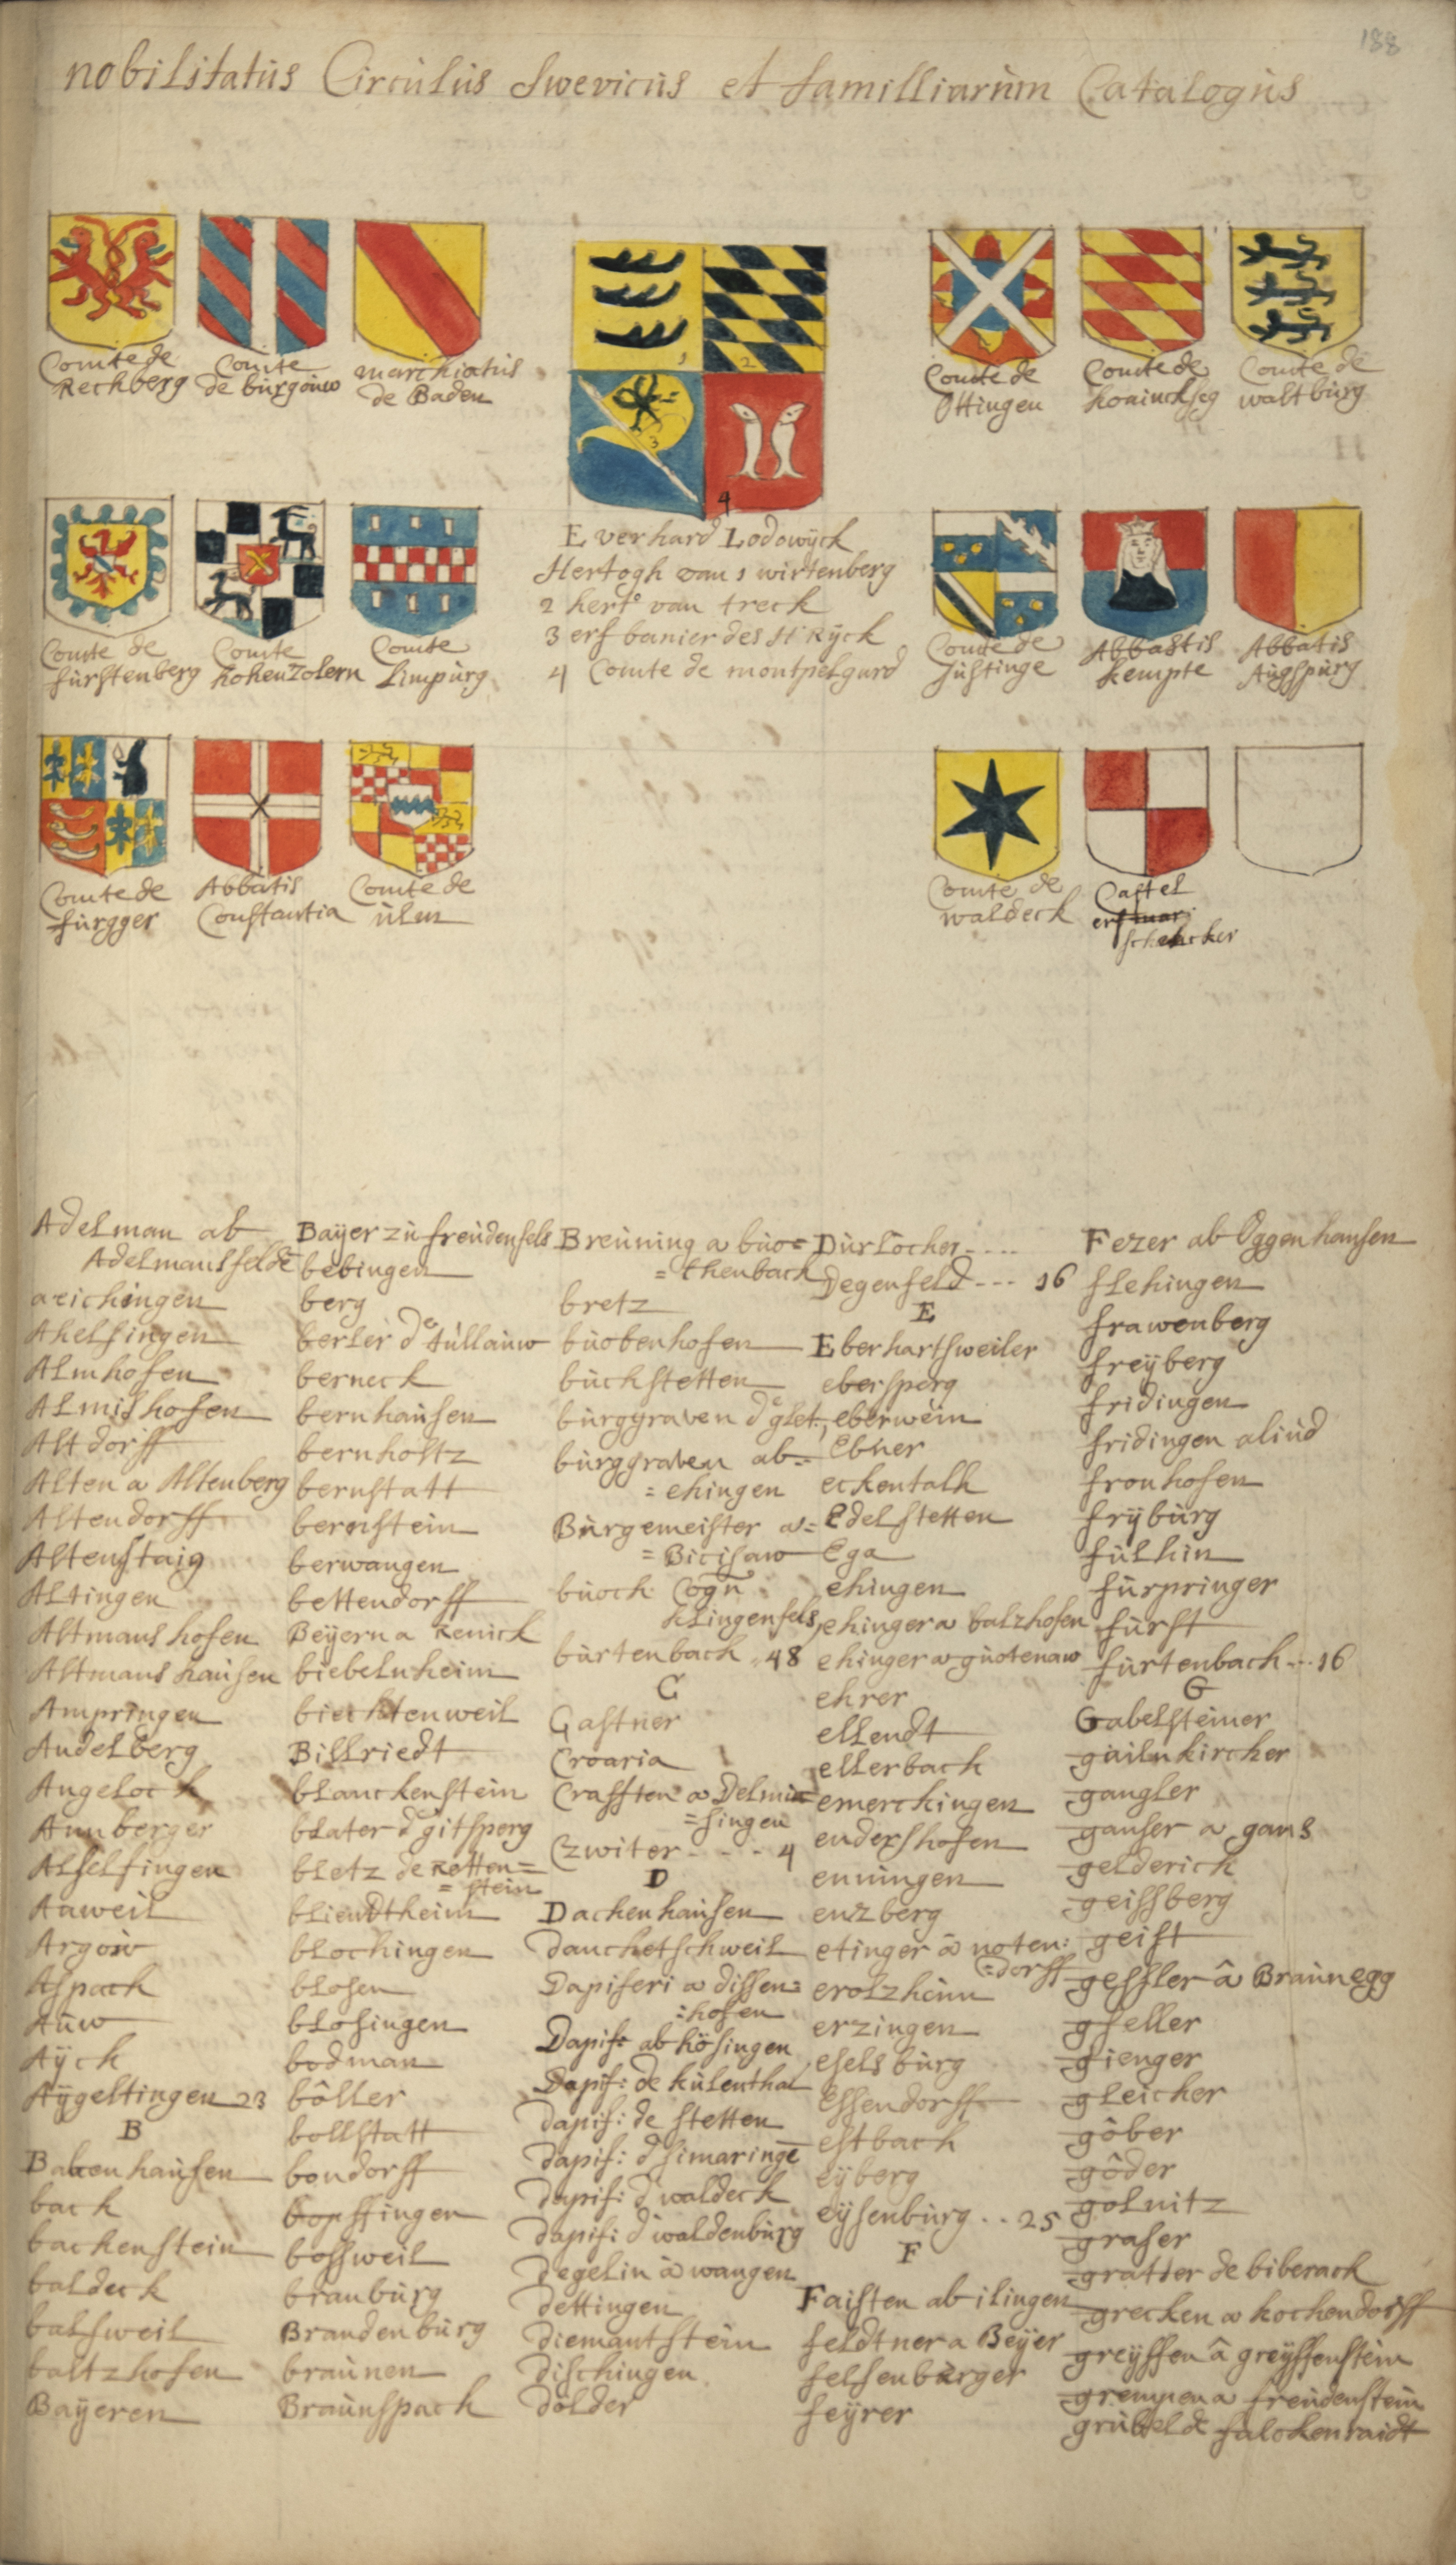 188
nobilitatus Circulus Swevicus et familliarum Catalogus
Comte de
Rechberg
Comte
de burgouw
marchiatus
de Baden
1
2
3
4
Comte de
Ottingen
Comte de
koninckseg
Comte de
waltburg
Comte de
furstenberg
Comte
hohenzolern
Comte
Limpurg
Everhard Lodowijck
Hertogh van 1 wirtenberg
2 hert° van treck
3 erf banier des H Rijck
4 Comte de montpelgard
Comte de
Justinge
Abbastis
kempte
Abbatis
Augspurg
Comte de
furgger
Abbatis
Constantia
Comte de
ulm
Comte de
waldeck
Castel
schencker
Adelman ab
Adelmansfelde
areichingen
Ahelfingen
Almhofen
Almishofen
Altdorff
Alten a Altenberg
Altendorff
Altenstaig
Altingen
Altmanshofen
Altmanshausen
Ampringen
Andelberg
Angeloch
Annberger
Alselfingen
Aaweil
Argow
Aspach
Auw
Aÿch
Aÿgeltingen 23
B
Babenhausen
bach
bachenstein
baldeck
balsweil
baltzhofen
Bayeren
Bayer zu freudenfels
bebingen
berg
berler de tullauw
berneck
bernhausen
bernholtz
bernstatt
bernstein
berwangen
bettendorff
Beyern a Renick
biebelnheim
biechtenweil
Billriedt
blanckenstein
blater d gitsperg
bletz de Retten=
=stein
bliendtheim
blochingen
blosen
blosingen
bodman
bôller
bollstatt
bondorff
bopffingen
bossweil
branburg
Brandenburg
braunen
Braunspach
Breuning a buo=
=thenbach
bretz
buobenhofen
buchstetten
burggraven de glet:
burggraven ab=
=ehingen
Burgemeister a=
=Bicisaw
buoch Cogn
klingenfels
burtenbach 48
C
Castner
Croaria
Crafften a Delmi=
=singen
Czwiter - - - 4
D
Dachenhausen
dauchetschweil
Dapiferi a dissen=
=hofen
Dapif: ab hôsingen
Dapif: de kulenthal
dapif: de stetten
dapif: d simaringe
dapif: d waldeck
dapif: d waldenburg
degelin â wangen
dettingen
diemantstein
dischingen
dolder
Durlocher ----
Degenfeld --- 16
E
Eberhartsweiler
ebersperg
eberwein
Ebner
eckentalh
Edelstetten
Ega
ehingen
ehinger a balzhofen
ehinger a guotenaw
ehrer
ellendt
ellerbach
emerckingen
endershofen
enningen
enzberg
etinger â noten:
=dorff
erolzheim
erzingen
eselsburg
Essendorff
estbach
eyberg
eysenburg .. 25
F
Faisten ab ilingen
feldtner a Beyer
felsenburger
feyrer
Fezer ab Oggenhausen
flehingen
frawenberg
freyberg
fridingen
fridingen aliud
fronhofen
fryburg
fulhin
furpringer
furst
furtenbach ... 16
G
Gabelsteiner
gailnkircher
gangler
ganser a gans
gelderich
geissberg
geist
gessler â Braunegg
gfeller
gienger
gleicher
gôber
gôder
golnitz
graser
gratter de biberach
grecken a kochendorff
greyffen â greyffenstein
grempen a freudenstein